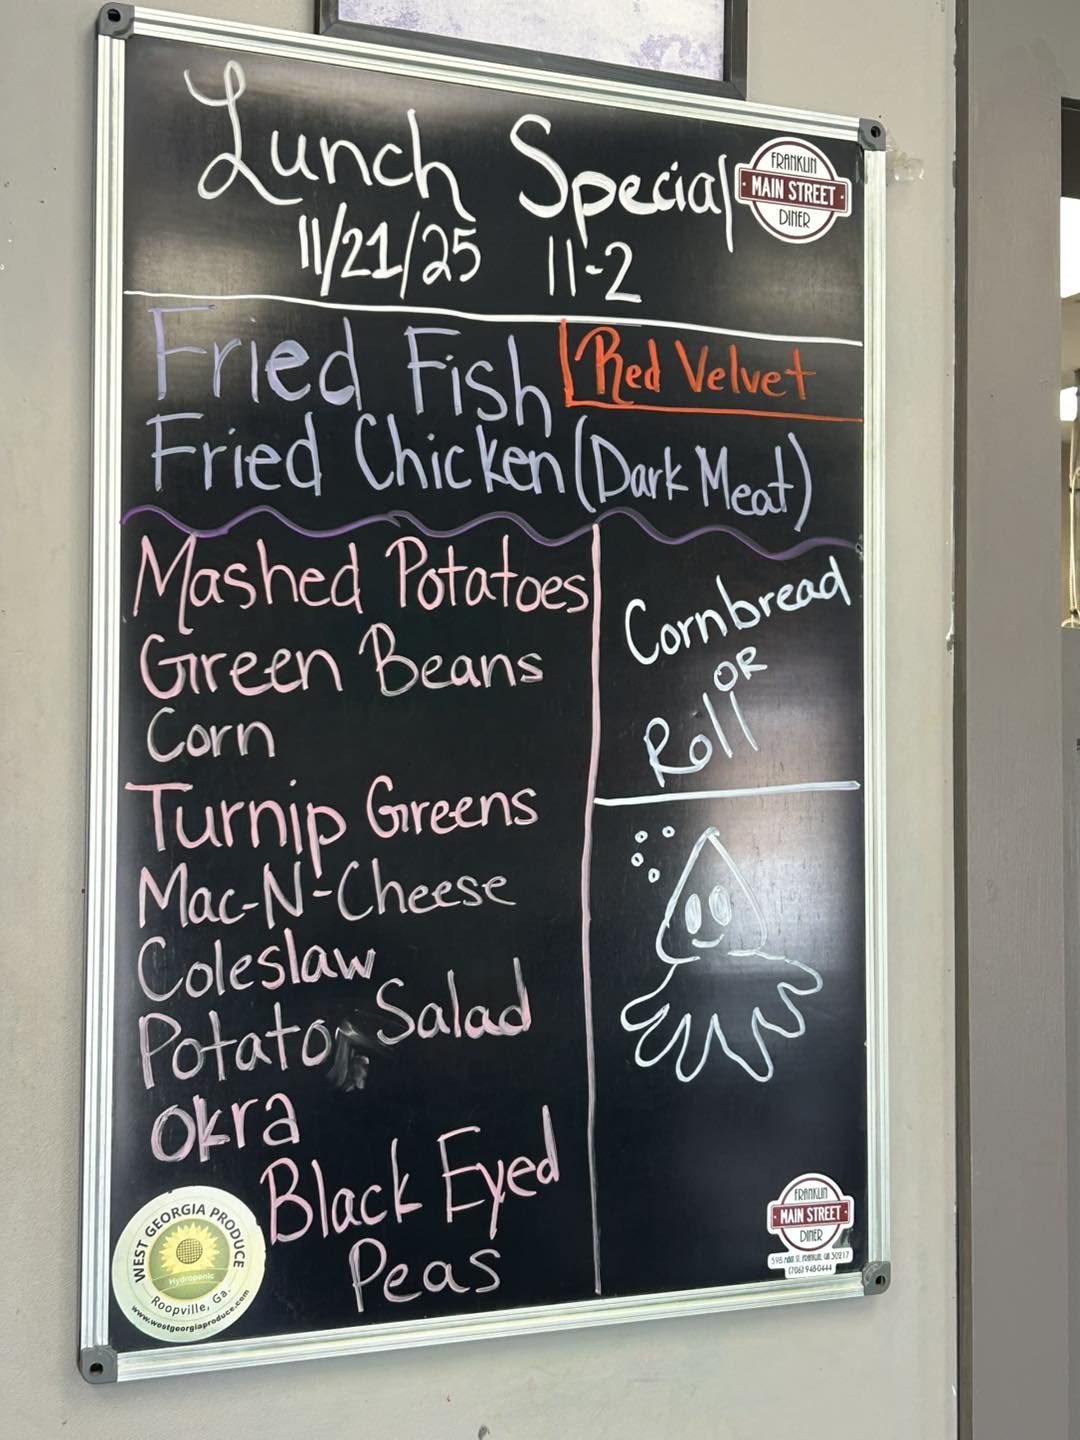 Lunch Special
11/21/25 11-2
FRANKLIN
MAIN STREET
DINER
Fried Fish
Red Velvet
Fried Chicken (Dark Meat)
Mashed Potatoes
Green Beans
Corn
Turnip Greens
Mac-N-Cheese
Coleslaw
Potato Salad
Okra
Black Eyed
Peas
Cornbread
OR
Roll
WEST GEORGIA PRODUCE
Hydroponic
Roopville, Ga.
www.westgeorgiaproduce.com
FRANKLIN
MAIN STREET
DINER
598 MAIN ST. FRANKLIN, GA 30217
(706) 948-0444